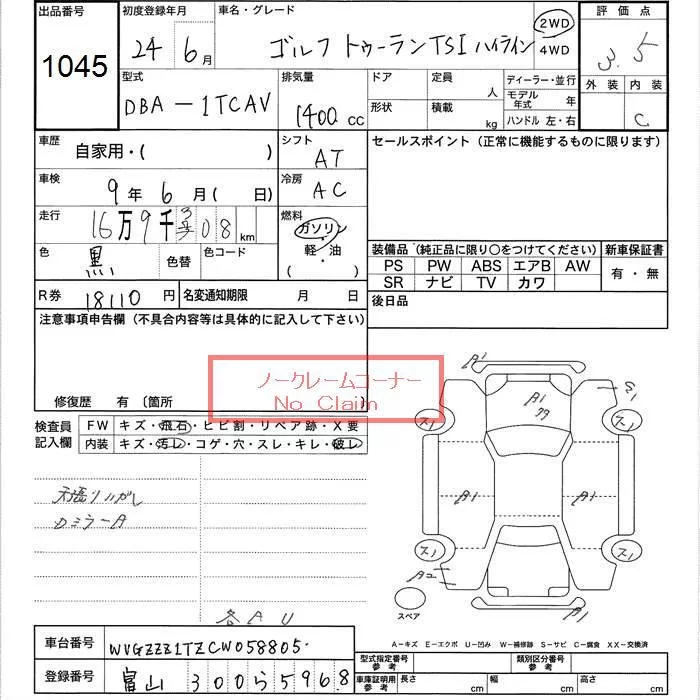 出品番号 初度登録年月 車名・グレード 評価点
1045 24 6月 ゴルフ トゥーランTSI ハイライン 2WD 4WD 3.5
型式 排気量 ドア 定員 人 ディーラー・並行 外装 内装
DBA-1TCAV 1400cc 形状 積載 kg モデル年式 年 C
ハンドル 左・右
車歴 自家用・( ) シフト AT セールスポイント(正常に機能するものに限ります)
車検 9年6月( 日) 冷房 AC
走行 16万9千308km 燃料 ガソリン・軽・油 ( )
色 黒 色替 色コード
装備品(純正品に限り○をつけてください) 新車保証書
PS PW ABS エアB AW 有・無
SR ナビ TV カワ
R券 18110円 名変通知期限 月 日 後日品
注意事項申告欄(不具合内容等は具体的に記入して下さい)
ノークレームコーナー
No Claim
修復歴 有 〔箇所
検査員記入欄 FW キズ・飛石・ヒビ割・リペア跡・X要
内装 キズ・汚レ・コゲ・穴・スレ・キレ・破レ
A1 S1
A1
ス1 ス1
A1 A1
ス1 ス1
A2
スペア A1
天張りハガレ
DミラーA
各AU
A-キズ E-エクボ U-凹み W-補修跡 S-サビ C-腐食 XX-交換済
車台番号 WVGZZZ1TZCW058805
登録番号 富山 300 ら 5968
型式指定番号参考 類別区分番号参考
車庫証明用参考 長さ cm 幅 cm 高さ cm